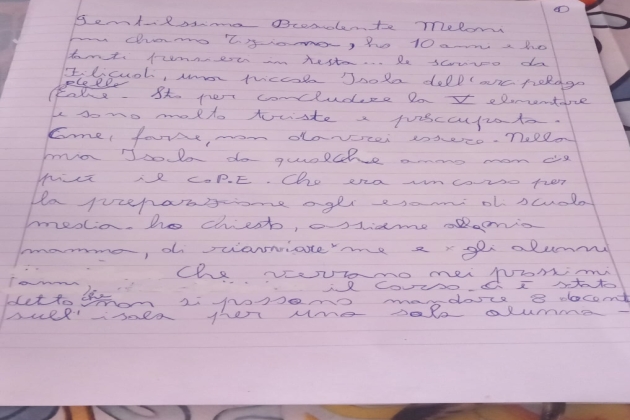 1
Gentilissima Presidente Meloni
mi chiamo Tiziana, ho 10 anni e ho
tanti pensieri in testa... le scrivo da
Filicudi, una piccola Isola dell'arcipelago
delle
Eolie. Sto per concludere la V elementare
e sono molto triste e preoccupata.
Come, forse, non dovrei essere. Nella
mia Isola da qualche anno non c'è
più il C.P.E. Che era un corso per
la preparazione agli esami di scuola
media. ho chiesto, assieme alla mia
mamma, di riavviare x me e x gli alunni
Che verranno nei prossimi
anni il corso. Ci è stato
detto che non si possono mandare 8 docenti
sull'isola per una sola alunna -